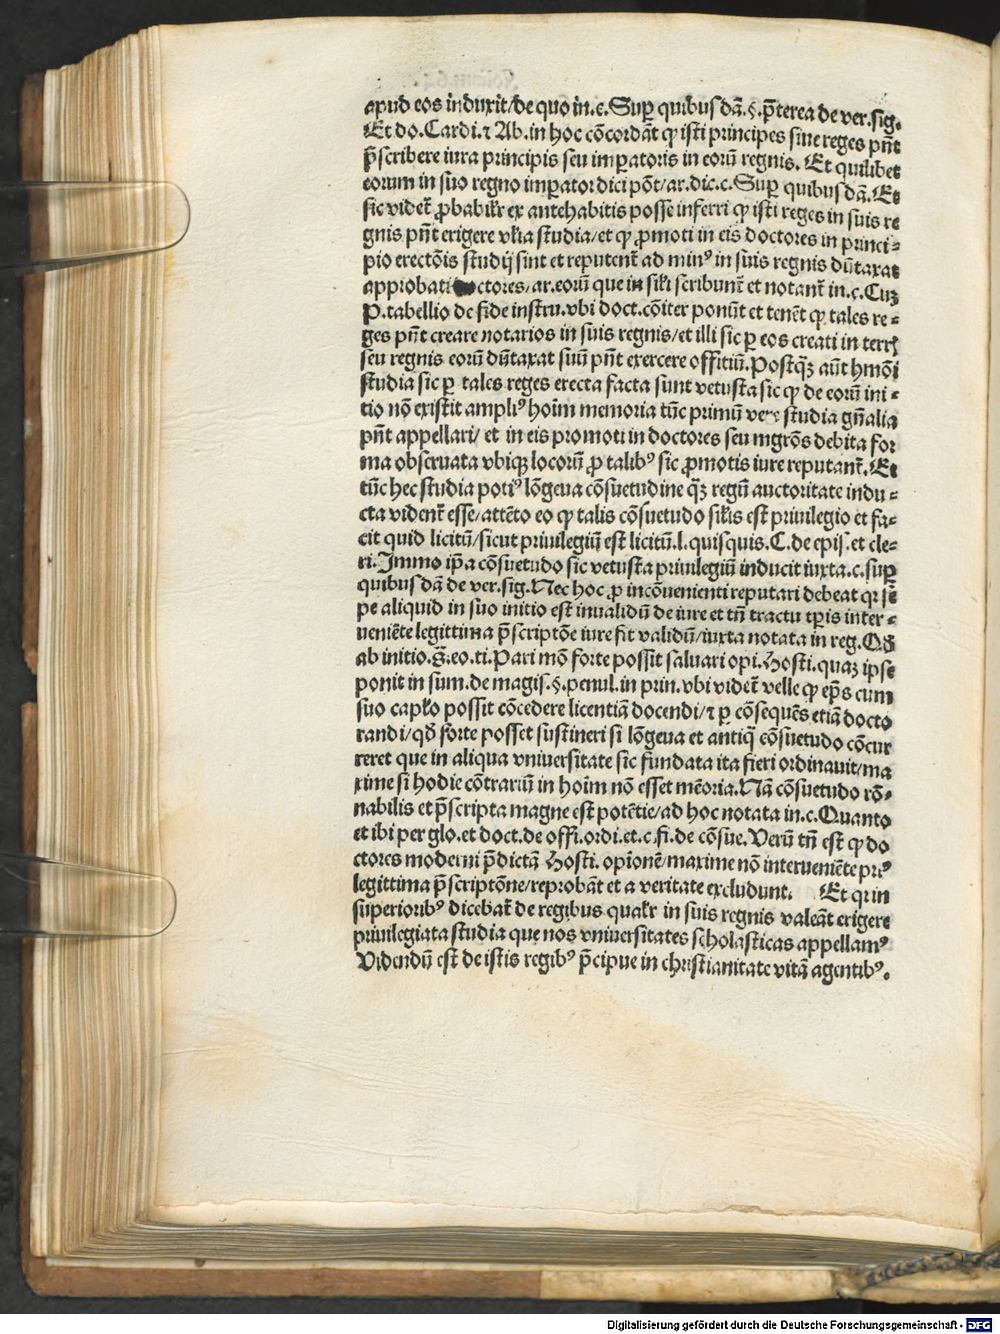 apud eos induxit/de quo in.c.Sup̱ quibusdā.§.p̄terea de ver.sig.
Et do.Cardi.⁊ Ab.in hoc cōcordāt ꝙ isti principes siue reges pñt
p̄scribere iura principis seu imꝑatoris in eorū regnis. Et quilibet
eorum in suo regno imꝑator dici pōt/ar.dic.c.Suꝑ quibusdā.Et
sic videt̄ ꝓbabilr̄ ex antehabitis posse inferri ꝙ isti reges in suis re
gnis pñt erigere vl̄ia studia/et ꝙ ꝓmoti in eis doctores in princi⸗
pio erectōis studij sint et reputent̄ ad minꝰ in suis regnis dūtaxat
approbati doctores/ar.eorū que in sil̄i scribunt̄ et notant̄ in.c.Cuʒ
P.tabellio de fide instru.vbi doct.cōiter ponūt et tenēt ꝙ tales re⸗
ges pñt creare notarios in suis regnis/et illi sic ꝑ eos creati in terrꝭ
seu regnis eorū dūtaxat suū pñt exercere offitiū.Postq̄ʒ aūt hmōi
studia sic ꝑ tales reges erecta facta sunt vetusta sic ꝙ de eorū ini⸗
tio nō existit ampliꝰ hoīm memoria tūc primū vere studia gñalia
pñt appellari/ et in eis promoti in doctores seu mgrōs debita for
ma obseruata vbiqʒ locorū ꝓ talibꝰ sic ꝓmotis iure reputant̄.Et
tūc hec studia potiꝰ lōgeua cōsuetudine q̄ʒ regū auctoritate indu⸗
cta vident̄ esse/attēto eo ꝙ talis cōsuetudo sil̄is est priuilegio et fa⸗
cit quid licitū/sicut priuilegiū est licitū.l.quisquis.C.de epis̄.et cle⸗
ri.Immo ip̄a cōsuetudo sic vetusta priuilegiū inducit iuxta.c.suꝑ
quibusdā de ver.sig.Nec hoc ꝓ incōuenienti reputari debeat qꝛ sē
pe aliquid in suo initio est inualidū de iure et tñ tractu tꝑis inter⸗
ueniēte legittima p̄scriptōe iure fit validū/iuxta notata in reg.Qđ
ab initio.ff.eo.ti.Pari mō forte possit saluari opi.Hosti.quaʒ ipse
ponit in sum.de magis.§.penul.in prin.vbi videt̄ velle ꝙ ep̄s cum
suo capl̄o possit cōcedere licentiā docendi/⁊ ꝑ cōsequēs etiā docto
randi/qđ forte posset sustineri si lōgeua et antiq̄ cōsuetudo cōcur
reret que in aliqua vniuersitate sic fundata ita fieri ordinauit/ma
xime si hodie cōtrariū in hoīm nō esset mēoria.Nā cōsuetudo rō⸗
nabilis et p̄scripta magne est potētie/ad hoc notata in.c.Quanto
et ibi per glo.et doct.de offi.ordi.et.c.fi.de cōsue.Verū tñ est ꝙ do
ctores moderni p̄dictā Hosti. opionē/maxime nō interueniēte priꝰ
legittima p̄scriptōne/reprobāt et a veritate excludunt. Et qꝛ in
superioribꝰ dicebat̄ de regibus qualr̄ in suis regnis valeāt erigere
priuilegiata studia que nos vniuersitates scholasticas appellamꝰ
Videndū est de istis regibꝰ p̄cipue in christianitate vitā agentibꝰ.
Digitalisierung gefördert durch die Deutsche Forschungsgemeinschaft - DFG